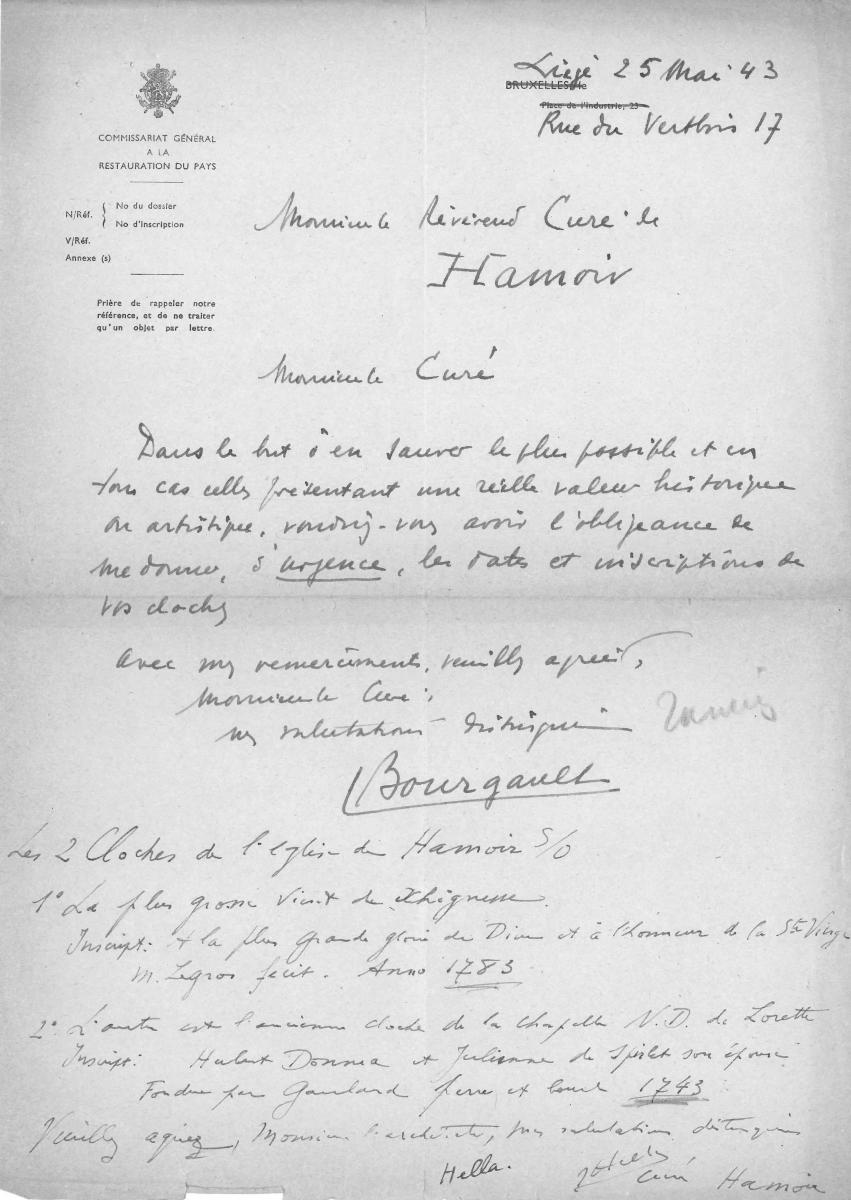 COMMISSARIAT GÉNÉRAL
A LA
RESTAURATION DU PAYS
N/Réf.
No du dossier
No d'inscription
V/Réf.
Annexe (s)
Prière de rappeler notre
référence, et de ne traiter
qu'un objet par lettre.
Liège 25 Mai 43
BRUXELLES
Place de l'Industrie, 23
Rue du Vertbois 17
Monsieur le Révérend Curé de
Hamoir
Monsieur le Curé
Dans le but d'en sauver le plus possible et en
tous cas celles présentant une réelle valeur historique
ou artistique, voudriez-vous avoir l'obligeance de
me donner, d'urgence, les dates et inscriptions de
vos cloches
Avec mes remerciements, veuillez agréer,
Monsieur le Curé,
mes salutations distinguées
Bourgault
Les 2 Cloches de l'église de Hamoir S/O
1° La plus grosse vient de Xhignesse.
Inscript: A la plus grande gloire de Dieu et à l'honneur de la Ste Vierge
M. Legros fecit. Anno 1783
2° L'autre est l'ancienne cloche de la chapelle N.D. de Lorette
Inscript: Hubert Donnea et Julienne de Spirlet son épouse
Fondue par Gaulard père et 1743
Veuillez agréez, Monsieur l'architecte, mes salutations distinguées
Hella.
Hella
curé Hamoir